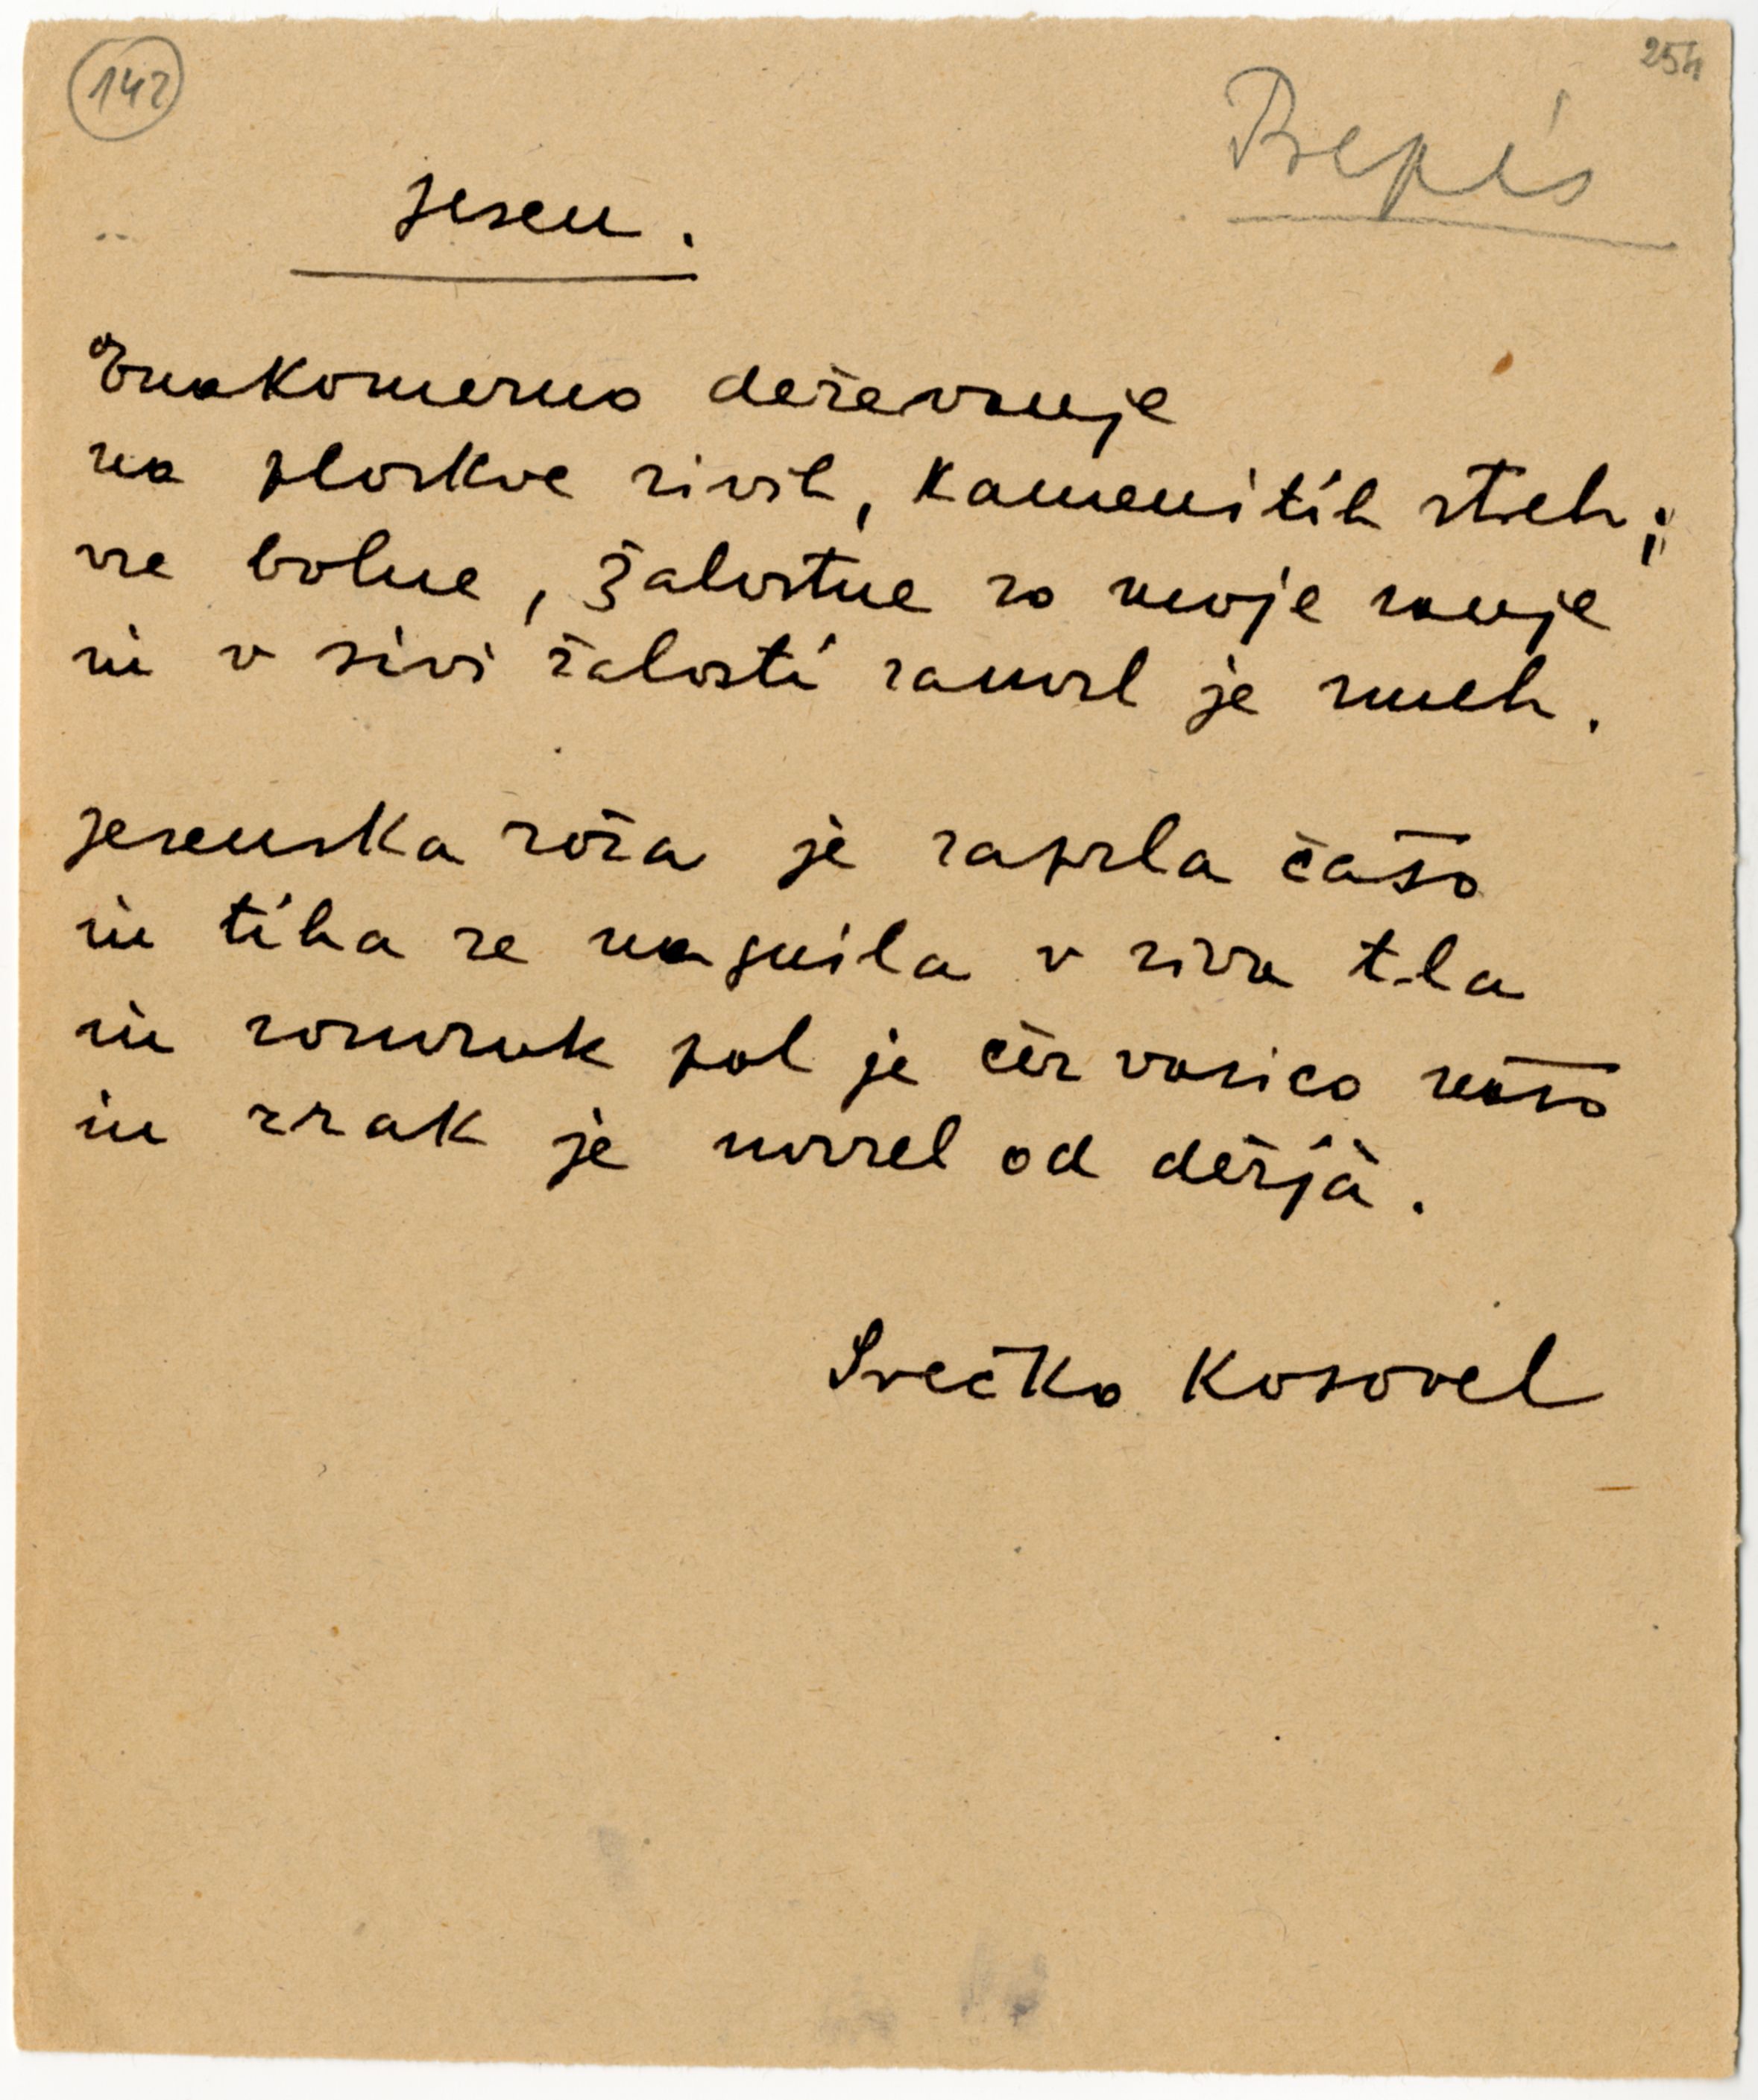 142
254
Prepis
Jesen.
Enakomerno deževanje
na ploskve sivih, kamenitih streh;
vse bolne, žalostne so moje sanje
in v sivi žalosti zamrl je smeh.
Jesenska roža je zaprla čašo
in tiha se nagnila v siva tla
in somrak pal je čez vasico našo
in zrak je mrzel od dežja.
Srečko Kosovel